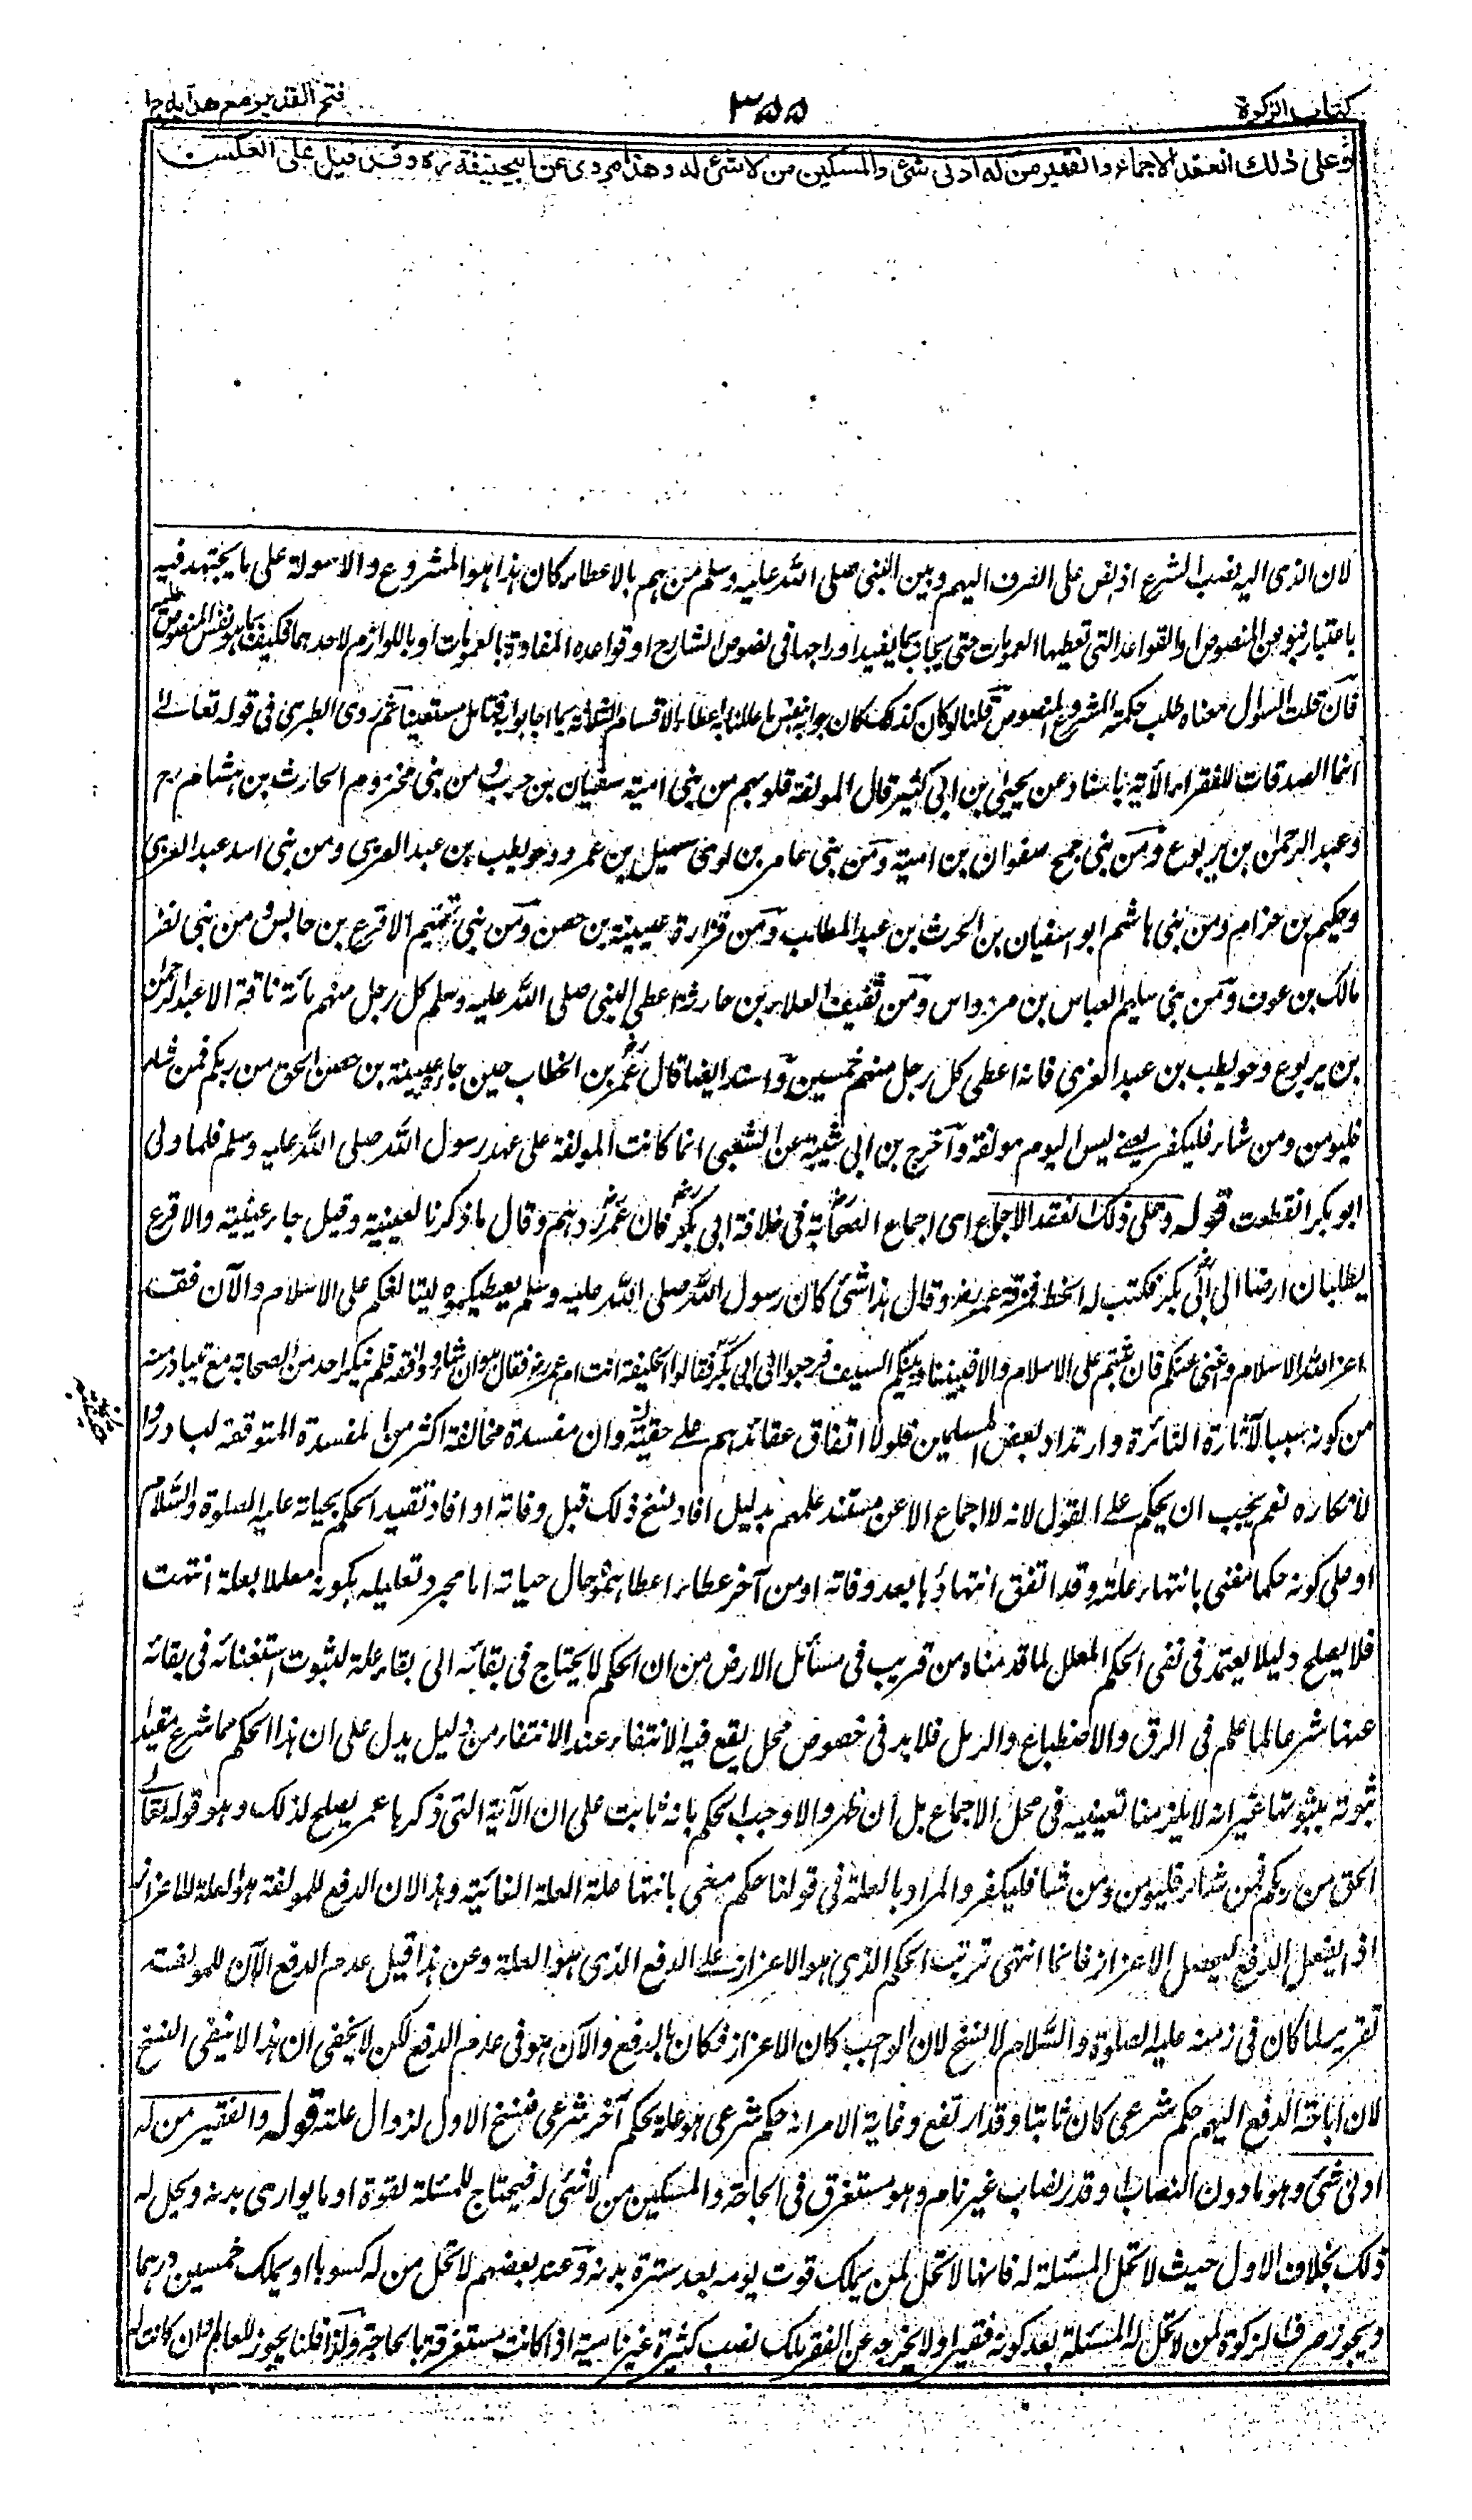 كتاب الزكوة
٣٥٥
فتح القدير مع هدايه ج١
وعلى ذلك انعقد الاجماع والفقير من له ادنى شئ والمسكين من لا شئ له وهذا مروى عن ابيحنيفة ره وقد قيل على العكس
لان الذى اليه نصب الشرع اذا نص على الصرف اليهم وبين النبى صلى الله عليه وسلم من هم بالاعطاء كان هذا هو المشروع والاسولة على ما يجتهد فيه
باعتبار نبوه عن المنصوص والقواعد التى تعطيها العمومات حتى يجاب بما يفيد ادراجها فى نصوص الشارح او قواعده المفادة بالعمومات او باللوازم لاحدهما فكيف بما هو نفس المنصوص عليه
فان قلت السوال معناه طلب حكمة المشروع المنصوص قلنا لو كان كذلك كان جوابه بنفس ما عللنا به اعطاء الاقسام الثمانية بما اجابوا به فتامل مستعينا ثم روى الطبرى فى قوله تعالے
انما الصدقات للفقراء الآية باسناد عن يحيى بن ابى كثير قال المولفة قلوبهم من بنى امية سفيان بن حرب ومن بنى مخزوم الحارث بن هشام
وعبد الرحمن بن يربوع ومن بنى جمح صفوان بن امية ومن بنى عامر بن لوى سهيل بن عمرو وحويطب بن عبد العزى ومن بنى اسد عبد العزى
وحكيم بن حزام ومن بنى هاشم ابو سفيان بن الحرث بن عبد المطلب ومن فزارة عيينة بن حصن ومن بنى تميم الاقرع بن حابس ومن بنى نصر
مالك بن عوف ومن بنى سليم العباس بن مرداس ومن ثقيف العلاء بن حارثة اعطى النبى صلى الله عليه وسلم كل رجل منهم مائة ناقة الا عبد الرحمن
بن يربوع وحويطب بن عبد العزى فانه اعطى كل رجل منهم خمسين واسند ايضا قال عمر بن الخطاب حين جاء عيينة بن حصن الحق من ربكم فمن شاء
فليومن ومن شاء فليكفر يعنے ليس اليوم مولفة واخرج بن ابى شيبة عن الشعبى انما كانت المولفة على عهد رسول الله صلى الله عليه وسلم فلما ولى
ابو بكر انقطعت قوله وعلى ذلك انعقد الاجماع اى اجماع الصحابة فى خلافة ابى بكر فان عمر ردهم وقال ما ذكرنا لعيينة وقيل جاء عيينة والاقرع
يطلبان ارضا الى ابى بكر فكتب له الخط فمزقه عمر وقال هذا شئ كان رسول الله صلى الله عليه وسلم يعطيكموه ليتالفكم على الاسلام والآن فقد
اعز الله الاسلام واغنى عنكم فان ثبتم على الاسلام والا فبيننا وبينكم السيف فرجعوا الى ابى بكر فقالوا الخليفة انت ام عمر فقال هو ان شاء ووافقه فلم ينكر احد من الصحابة مع ما يتبادر منه
من كونه سببا لآثارة النائرة وارتداد بعض المسلمين فلولا اتفاق عقائدهم علے حقيته وان مفسدة مخالفته اكثر من المفسدة المتوقعة لبادروا
لانكاره نعم يجب ان يحكم علے القول لانه لا اجماع الا عن مستند علمهم بدليل افاد نسخ ذلك قبل وفاته او افاد تقييد الحكم بحياته عليه الصلوة والسلام
او على كونه حكما مغنى بانتهاء علته وقد اتفق انتهاؤها بعد وفاته او من آخر عطاء اعطاهموه حال حياته اما مجرد تعليله بكونه معللا بعلة انتهت
فلا يصلح دليلا يعتمد فى نفى الحكم المعلل لما قدمناه من قريب فى مسائل الارض من ان الحكم لا يحتاج فى بقائه الى بقاء علة لثبوت استغنائه فى بقائه
عنها شرعا لما علم فى الرق والاضطباع والرمل فلا بد فى خصوص محل يقع فيه الانتفاء عند الانتفاء من دليل يدل على ان هذا الحكم مما شرع مقيدا
ثبوته بثبوتها غير انه لا يلزمنا تعيينه فى محل الاجماع بل ان ظهر والا وجب الحكم بانه ثابت على ان الآية التى ذكرها عمر يصلح لذلك وهو قوله تعالى
الحق من ربكم فمن شاء فليومن ومن شاء فليكفر والمراد بالعلة فى قولنا حكم مغى بانتهاء علته العلة الغائية وهذا لان الدفع للمولفة هو العلة للاعزاز
اذ يفعل الدفع ليحصل الاعزاز فانما انتهى ترتب الحكم الذى هو الاعزاز علے الدفع الذى هو العلة وعن هذا قيل عدم الدفع الآن للمولفة
تقرير لما كان فى زمنه عليه الصلوة والسلام لا نسخ لان الواجب كان الاعزاز فكان بالدفع والآن هو فى عدم الدفع لكن لا يخفى ان هذا لا ينفى النسخ
لان اباحة الدفع اليهم حكم شرعى كان ثابتا وقد ارتفع وغاية الامر انه حكم شرعى هو علة لحكم آخر شرعى فنسخ الاول لزوال علته قوله والفقير من له
ادنى شئ وهو ما دون النصاب او قدر نصاب غير نام وهو مستغرق فى الحاجة والمسكين من لا شئ له فيحتاج للمسئلة لقوته او ما يوارى بدنه ويحل له
ذلك بخلاف الاول حيث لا تحل المسئلة له فانها لا تحل لمن يملك قوت يومه بعد سترة بدنه وعند بعضهم لا تحل من له كسوبا او يملك خمسين درهما
ويجوز صرف الزكوة لمن لا تحل له المسئلة بعد كونه فقيرا ولا يخرجه عن الفقر ملك نصب كثيرة غير نامية اذا كانت مستغرقة بالحاجة ولذا قلنا يجوز للعالم وان كانت له